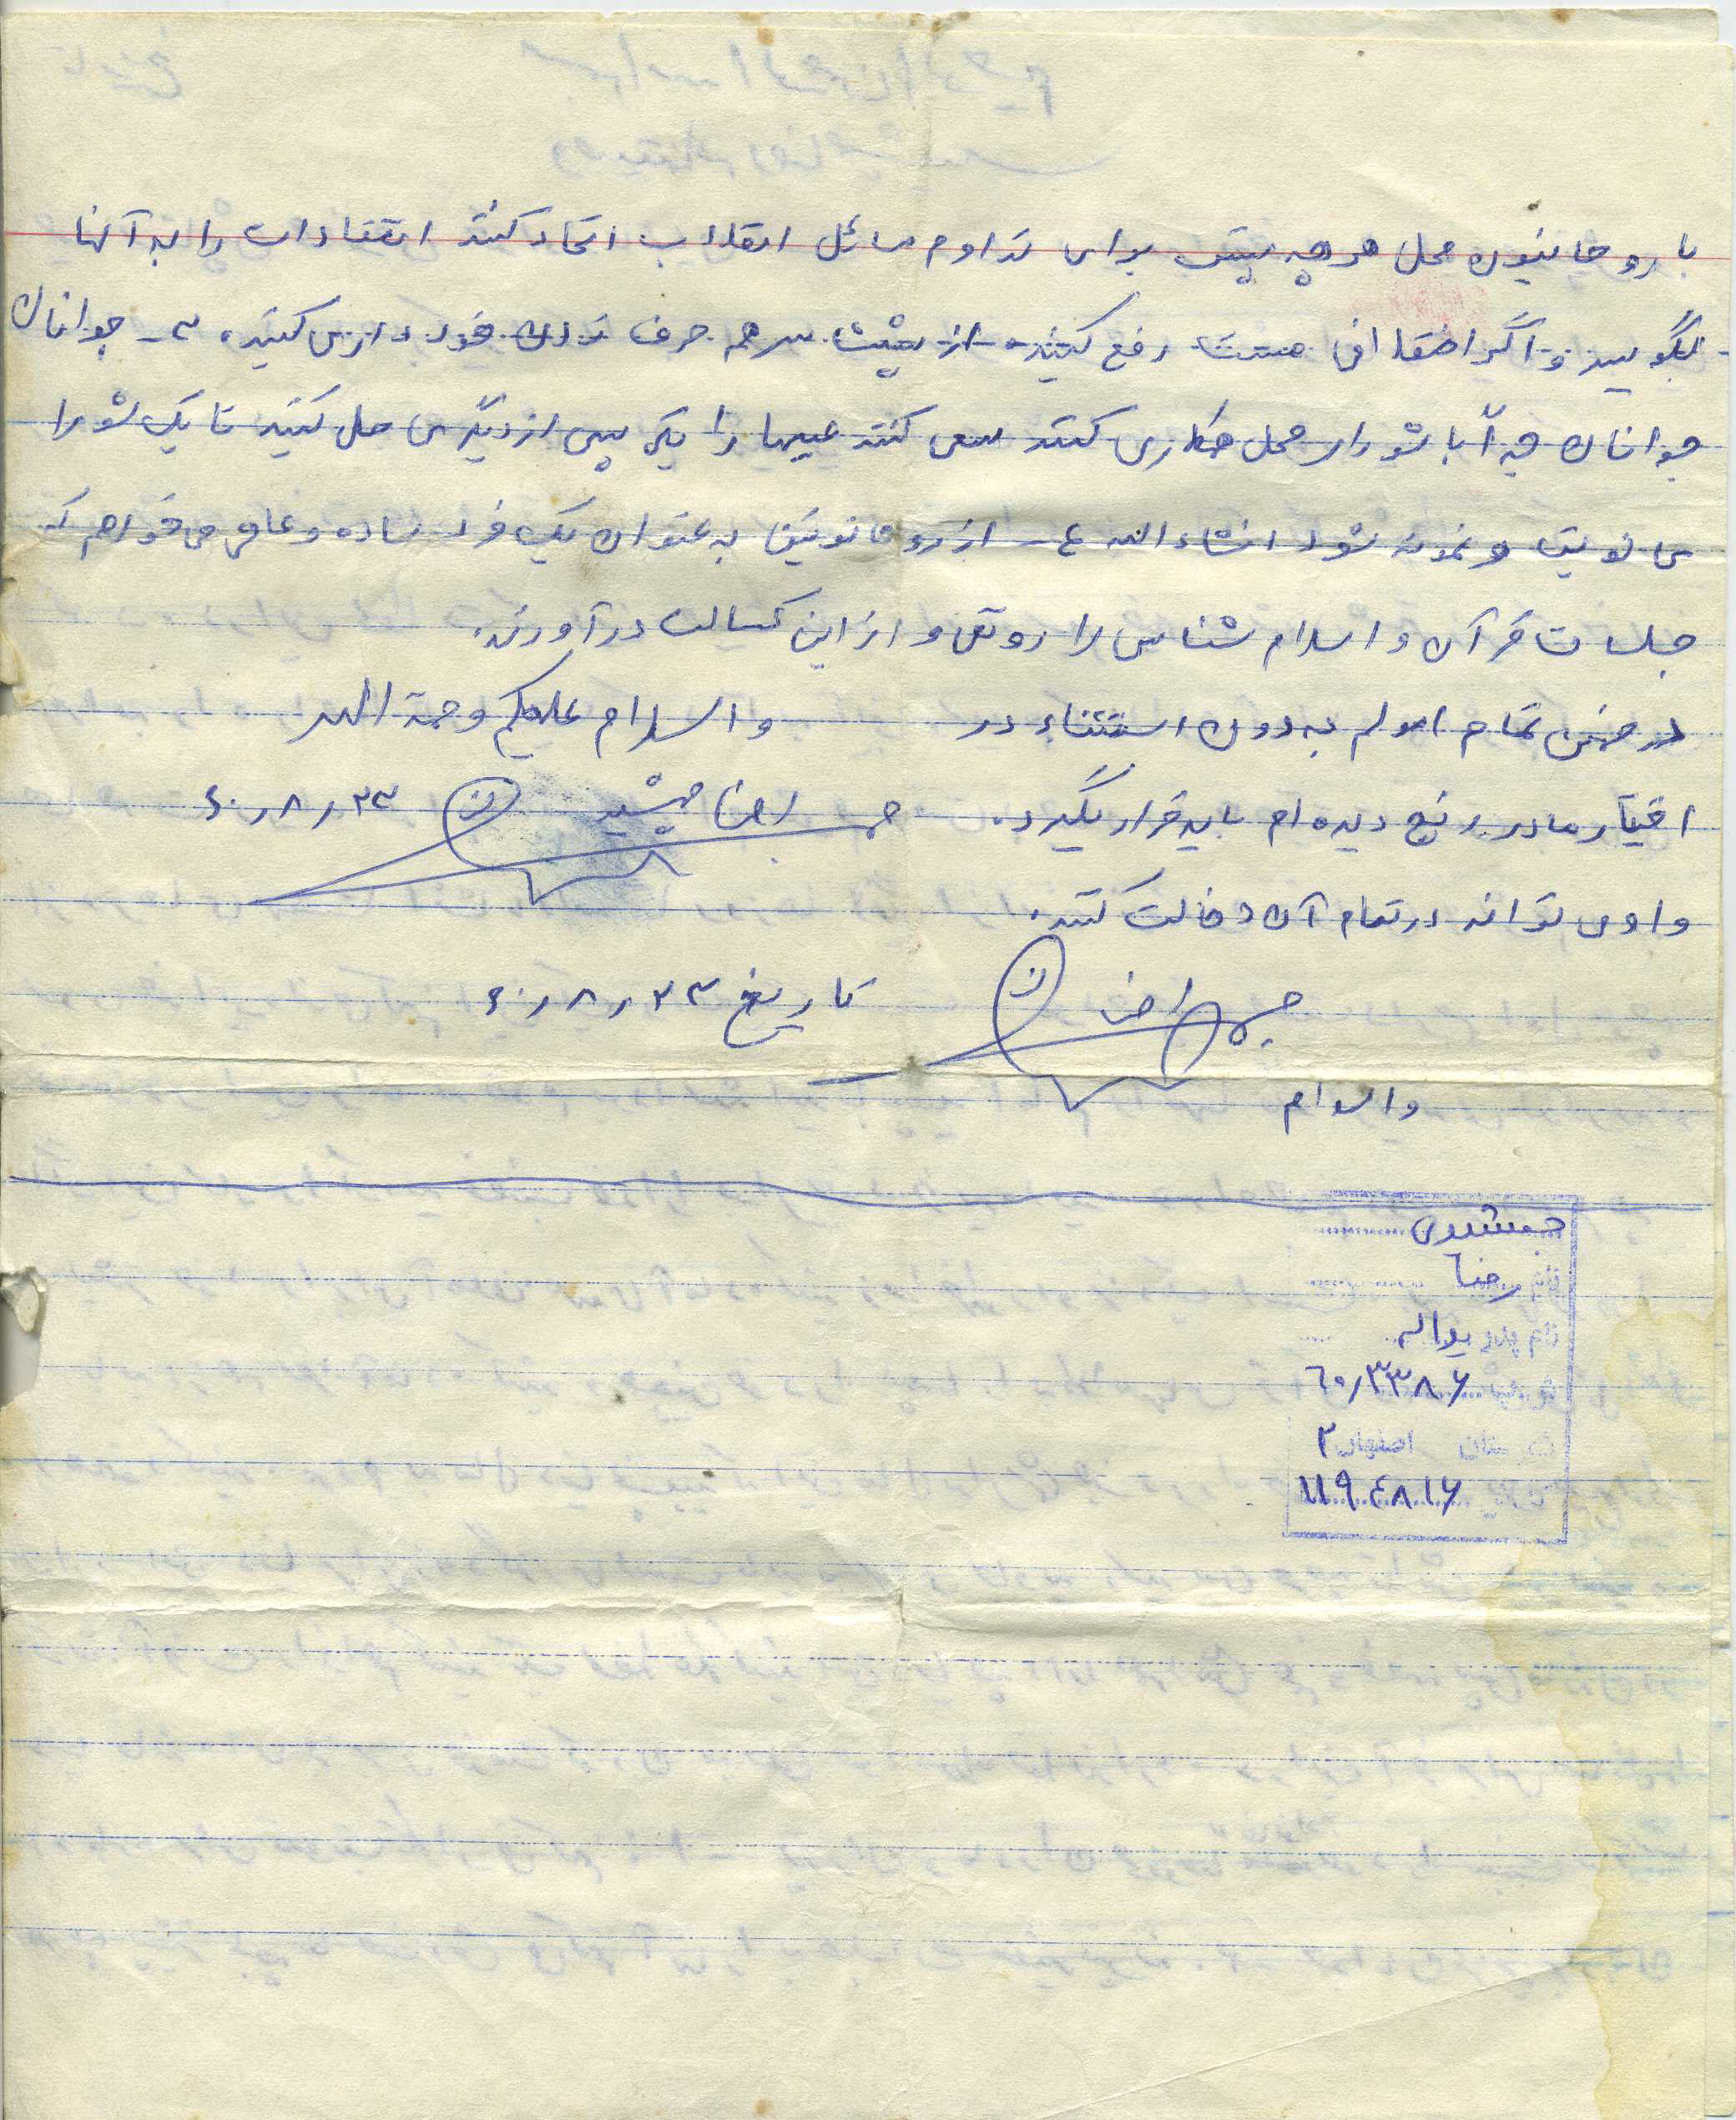 با روحانیون محل هر چه بیشتر برای تداوم مسائل انقلاب اتحاد کنند انتقادات را به آنها
بگویید و اگر اختلافی هست رفع کنید از پشت سر هم حرف زدن خود داری کنید، ۳- جوانان
جوانان جداً با شورای محل همکاری کنند سعی کنند عیبها را یکی پس از دیگری حل کنید تا یک شورا
ی خوبتر و نمونه شود انشاءالله ۴- از روحانوین به عنوان یک فرد ساده و عامی می خواهم که
جلسات قرآن و اسلام شناسی را رونق و از این کسالت درآورند.
در ضمن تمام اموالم به دون استثناء در
والسلام علیکم و رحمة الله
اختیار مادر رنج دیده ام باید قرار بگیرد.
رضا جمشید ۶۰٫۸٫۲۳
و او می تواند در تمام آن دخالت کند.
رضا تاریخ ۶۰٫۸٫۲۳
والسلام
جمشیدی
نام رضا
نام پدر یداله
۶۰٫۳۳۸۶
شهرستان اصفهان ۲
۱۱۹٤۸۱۶